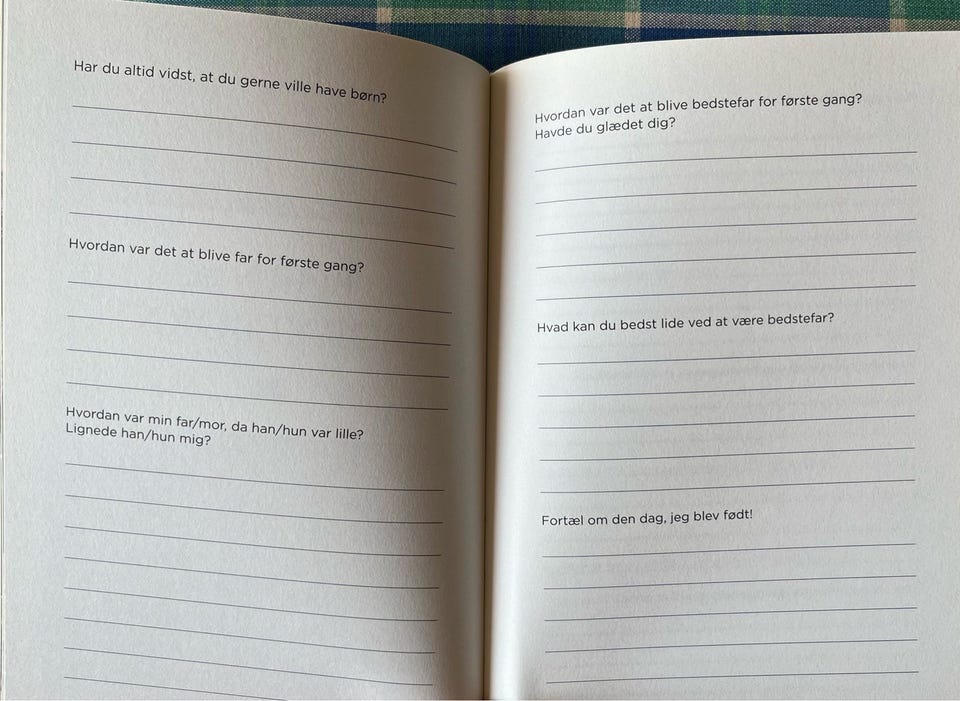 Har du altid vidst, at du gerne ville have børn?
Hvordan var det at blive far for første gang?
Hvordan var min far/mor, da han/hun var lille?
Lignede han/hun mig?
Hvordan var det at blive bedstefar for første gang?
Havde du glædet dig?
Hvad kan du bedst lide ved at være bedstefar?
Fortæl om den dag, jeg blev født!